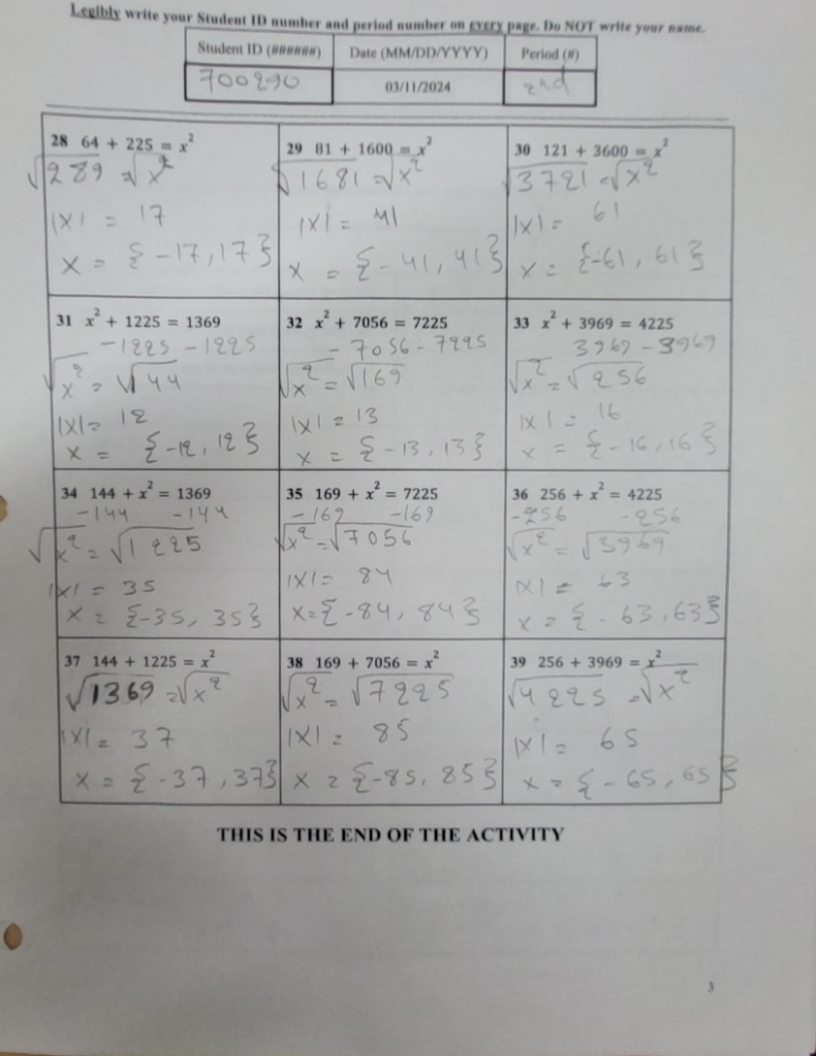 Legibly write your Student ID number and period number on every page. Do NOT write your name.
Student ID (######) Date (MM/DD/YYYY) Period (#)
700290 03/11/2024 2nd
28 64 + 225 = x²
√289 = √x²
|x| = 17
x = {-17, 17}
29 81 + 1600 = x²
√1681 = √x²
|x| = 41
x = {-41, 41}
30 121 + 3600 = x²
√3721 = √x²
|x| = 61
x = {-61, 61}
31 x² + 1225 = 1369
-1225 -1225
√x² = √144
|x| = 12
x = {-12, 12}
32 x² + 7056 = 7225
- 7056 - 7225
√x² = √169
|x| = 13
x = {-13, 13}
33 x² + 3969 = 4225
3969 - 3969
√x² = √256
|x| = 16
x = {-16, 16}
34 144 + x² = 1369
-144 -144
√x² = √1225
|x| = 35
x = {-35, 35}
35 169 + x² = 7225
-169 -169
√x² = √7056
|x| = 84
x = {-84, 84}
36 256 + x² = 4225
-256 -256
√x² = √3969
|x| = 63
x = {-63, 63}
37 144 + 1225 = x²
√1369 = √x²
|x| = 37
x = {-37, 37}
38 169 + 7056 = x²
√x² = √7225
|x| = 85
x = {-85, 85}
39 256 + 3969 = x²
√4225 = √x²
|x| = 65
x = {-65, 65}
THIS IS THE END OF THE ACTIVITY
3